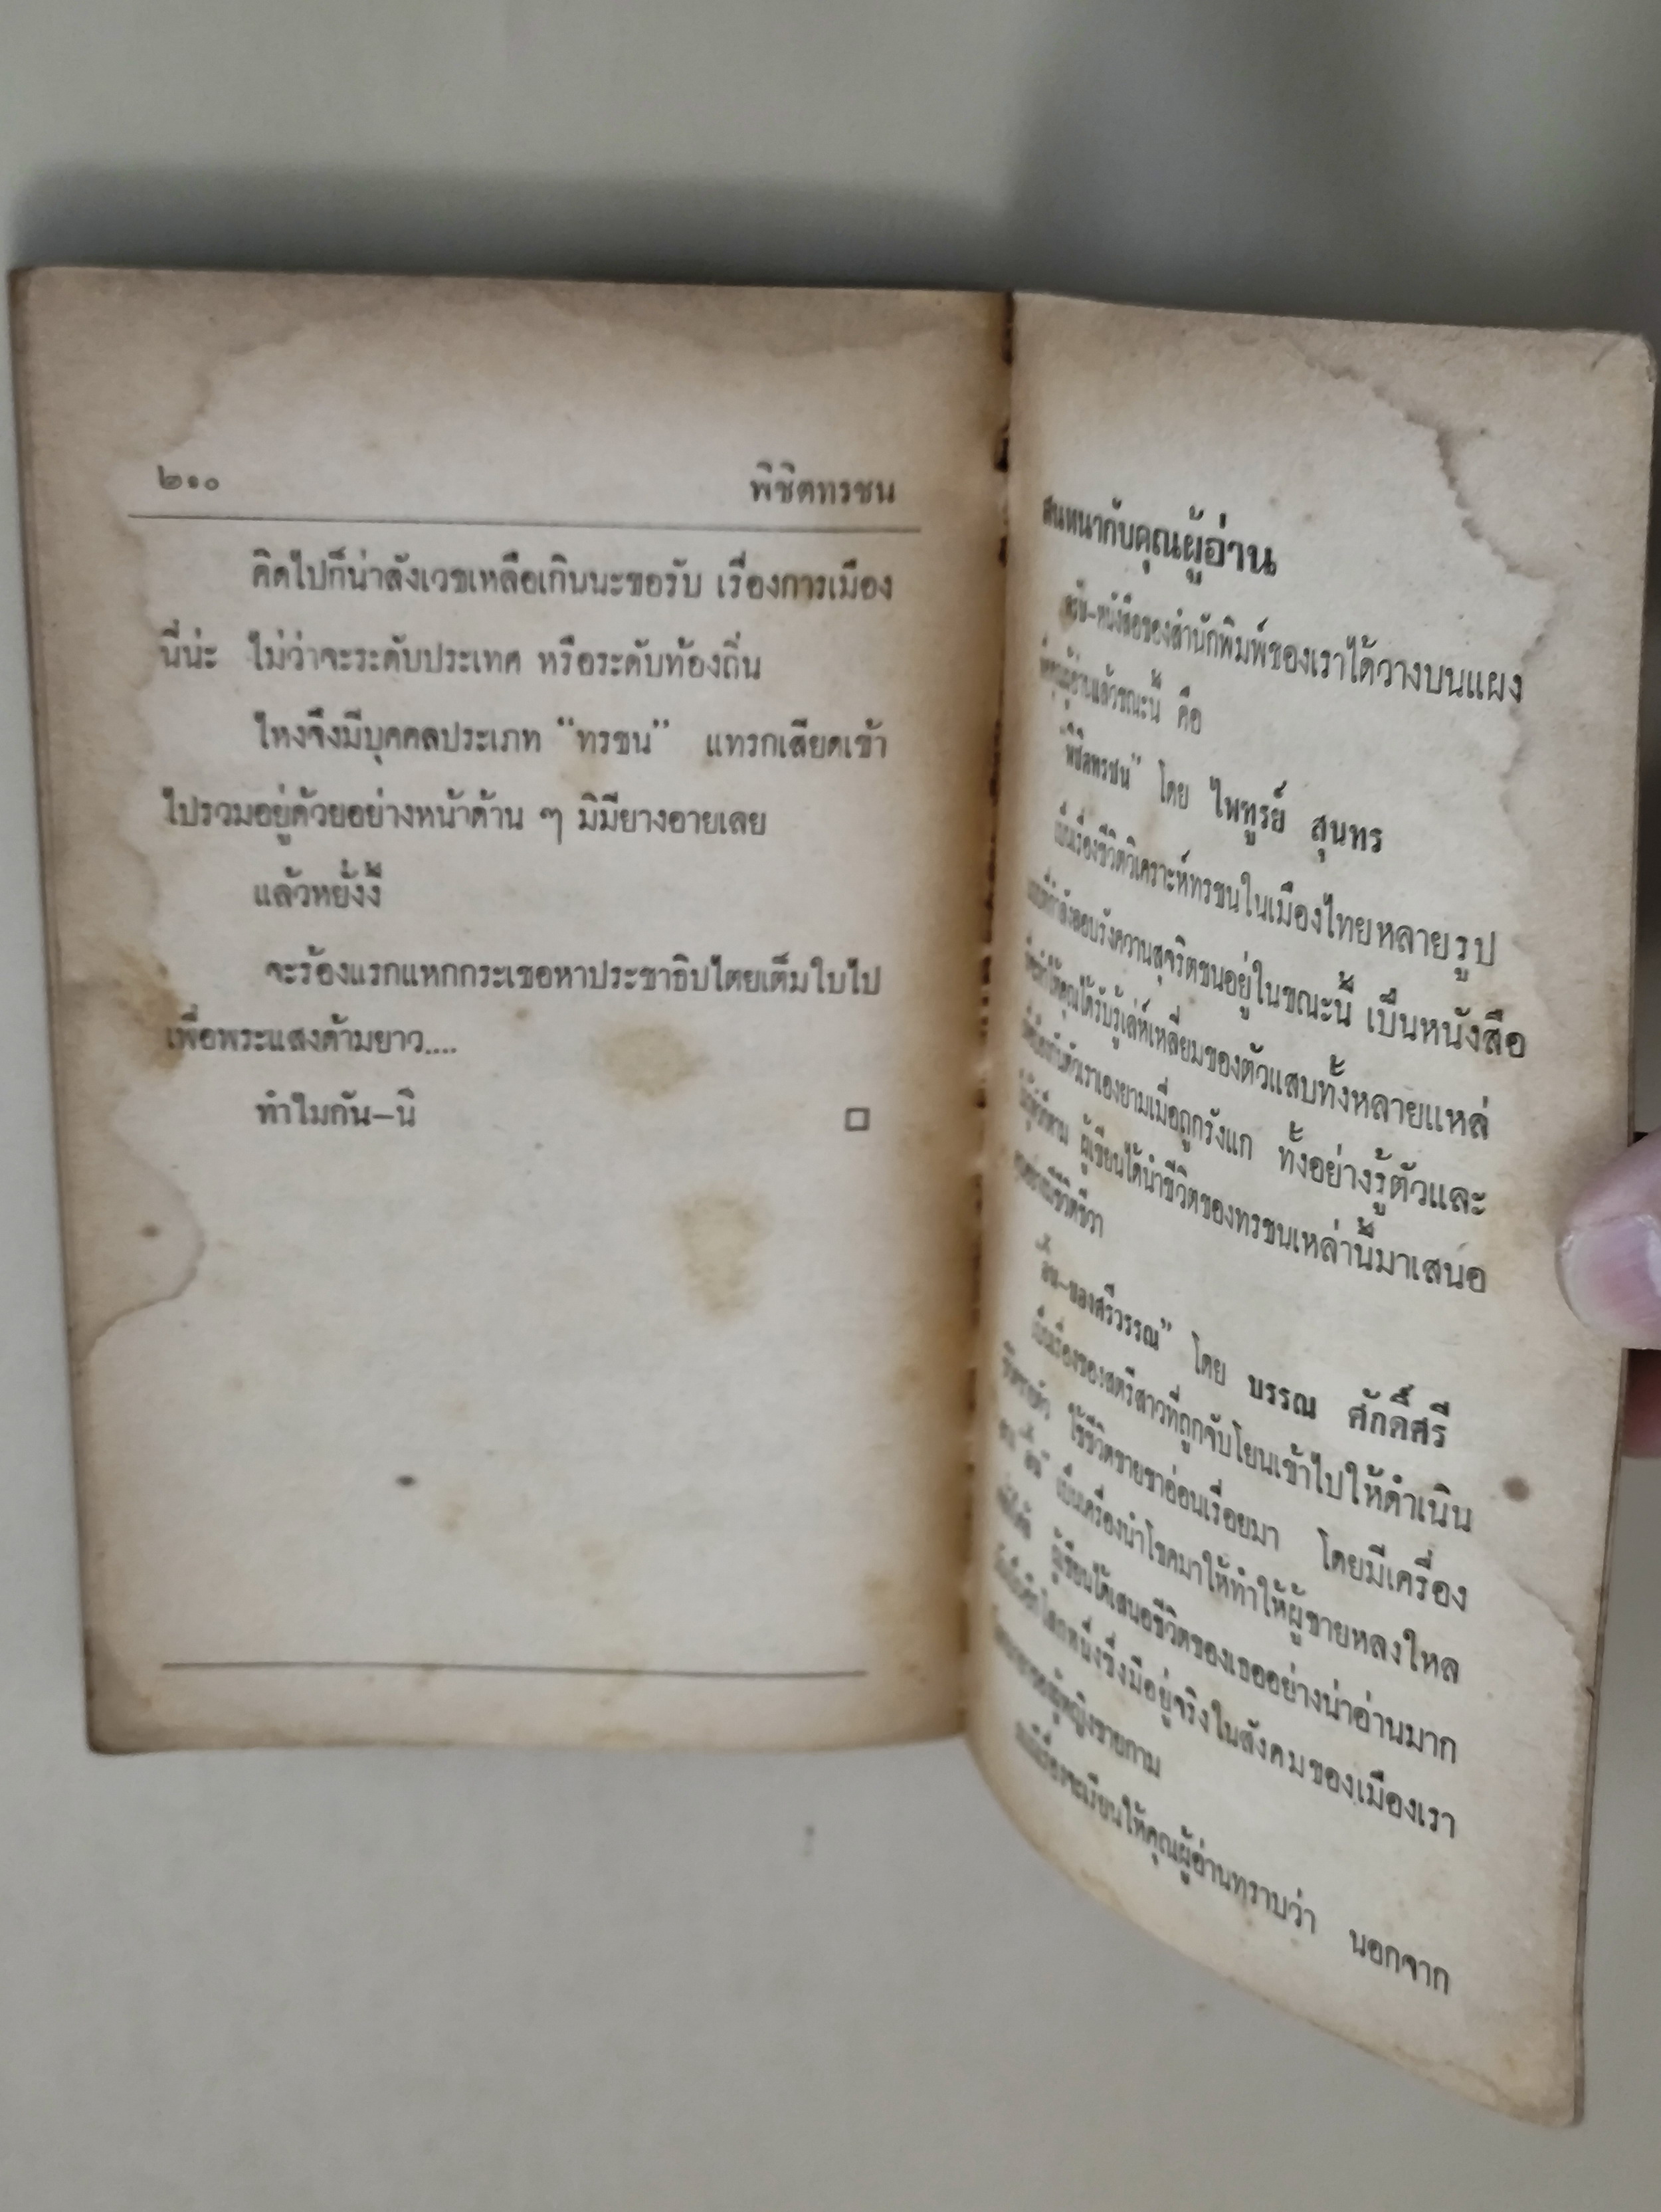 ๒๑๐ พิชิตทรชน
คิดไปก็น่าสังเวชเหลือเกินนะขอรับ เรื่องการเมือง
นี่น่ะ ไม่ว่าจะระดับประเทศ หรือระดับท้องถิ่น
ไหงจึงมีบุคคลประเภท “ทรชน” แทรกเสียดเข้า
ไปรวมอยู่ด้วยอย่างหน้าด้าน ๆ มิมียางอายเลย
แล้วหยั่งงี้
จะร้องแรกแหกกระเชอหาประชาธิปไตยเต็มใบไป
เพื่อพระแสงด้ามยาว....
ทำไมกัน–นิ
สนทนากับคุณผู้อ่าน
ครับ–หนังสือของสำนักพิมพ์ของเราได้วางบนแผง
คุณผู้อ่านแล้วขณะนี้ คือ
“พิชิตทรชน” โดย ไพฑูรย์ สุนทร
เป็นเรื่องชีวิตวิเคราะห์ทรชนในเมืองไทยหลายรูป
ที่กำลังลอบรังควานสุจริตชนอยู่ในขณะนี้ เป็นหนังสือ
ให้คุณได้รับรู้เล่ห์เหลี่ยมของตัวแสบทั้งหลายแหล่
ตัวเราเองยามเมื่อถูกรังแก ทั้งอย่างรู้ตัวและ
ผู้เขียนได้นำชีวิตของทรชนเหล่านี้มาเสนอ
มีชีวิตชีวา
–ของศรีวรรณ” โดย บรรณ ศักดิ์ศรี
เป็นเรื่องของสตรีสาวที่ถูกจับโยนเข้าไปให้ดำเนิน
ใช้ชีวิตขายขาอ่อนเรื่อยมา โดยมีเครื่อง
เป็นเครื่องนำโชคมาให้ทำให้ผู้ชายหลงใหล
ผู้เขียนได้เสนอชีวิตของเธออย่างน่าอ่านมาก
โลกหนึ่งซึ่งมีอยู่จริงในสังคมของเมืองเรา
ผู้หญิงขายกาม
จะเรียนให้คุณผู้อ่านทราบว่า นอกจาก